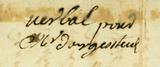 verbal pour
Mr Dargenteuil